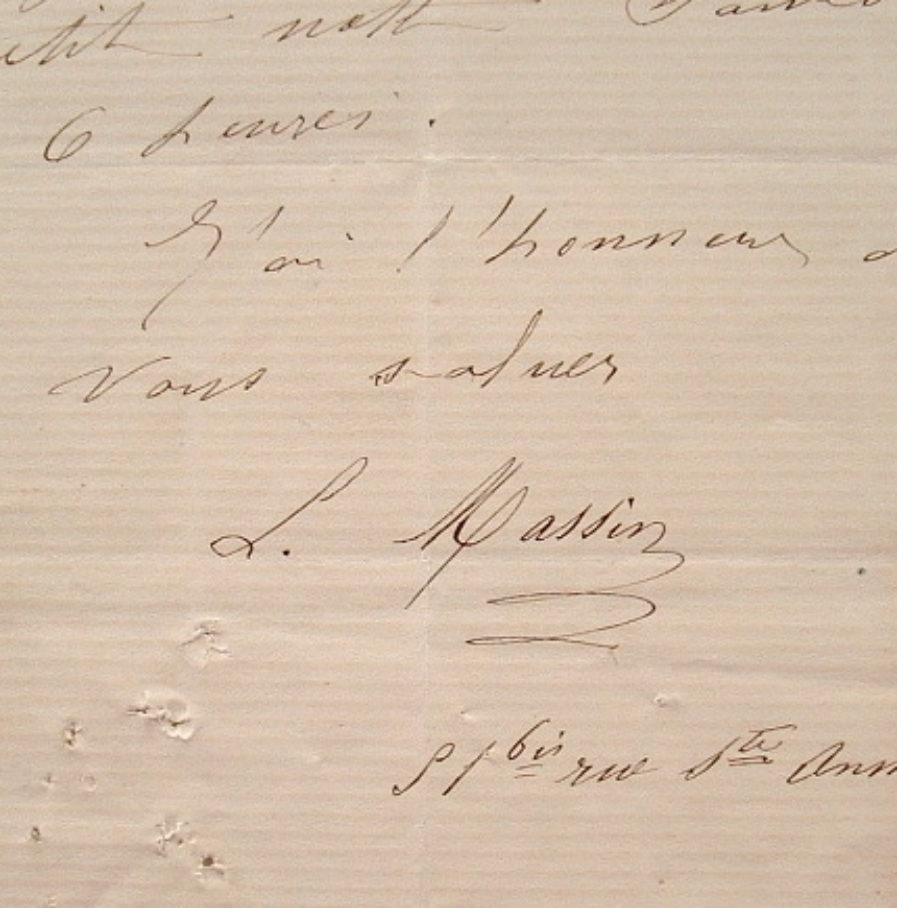 petit mott
6 heures.
J'ai l'honneur d
vous saluer
L. Massin
51 bis rue Ste Ann